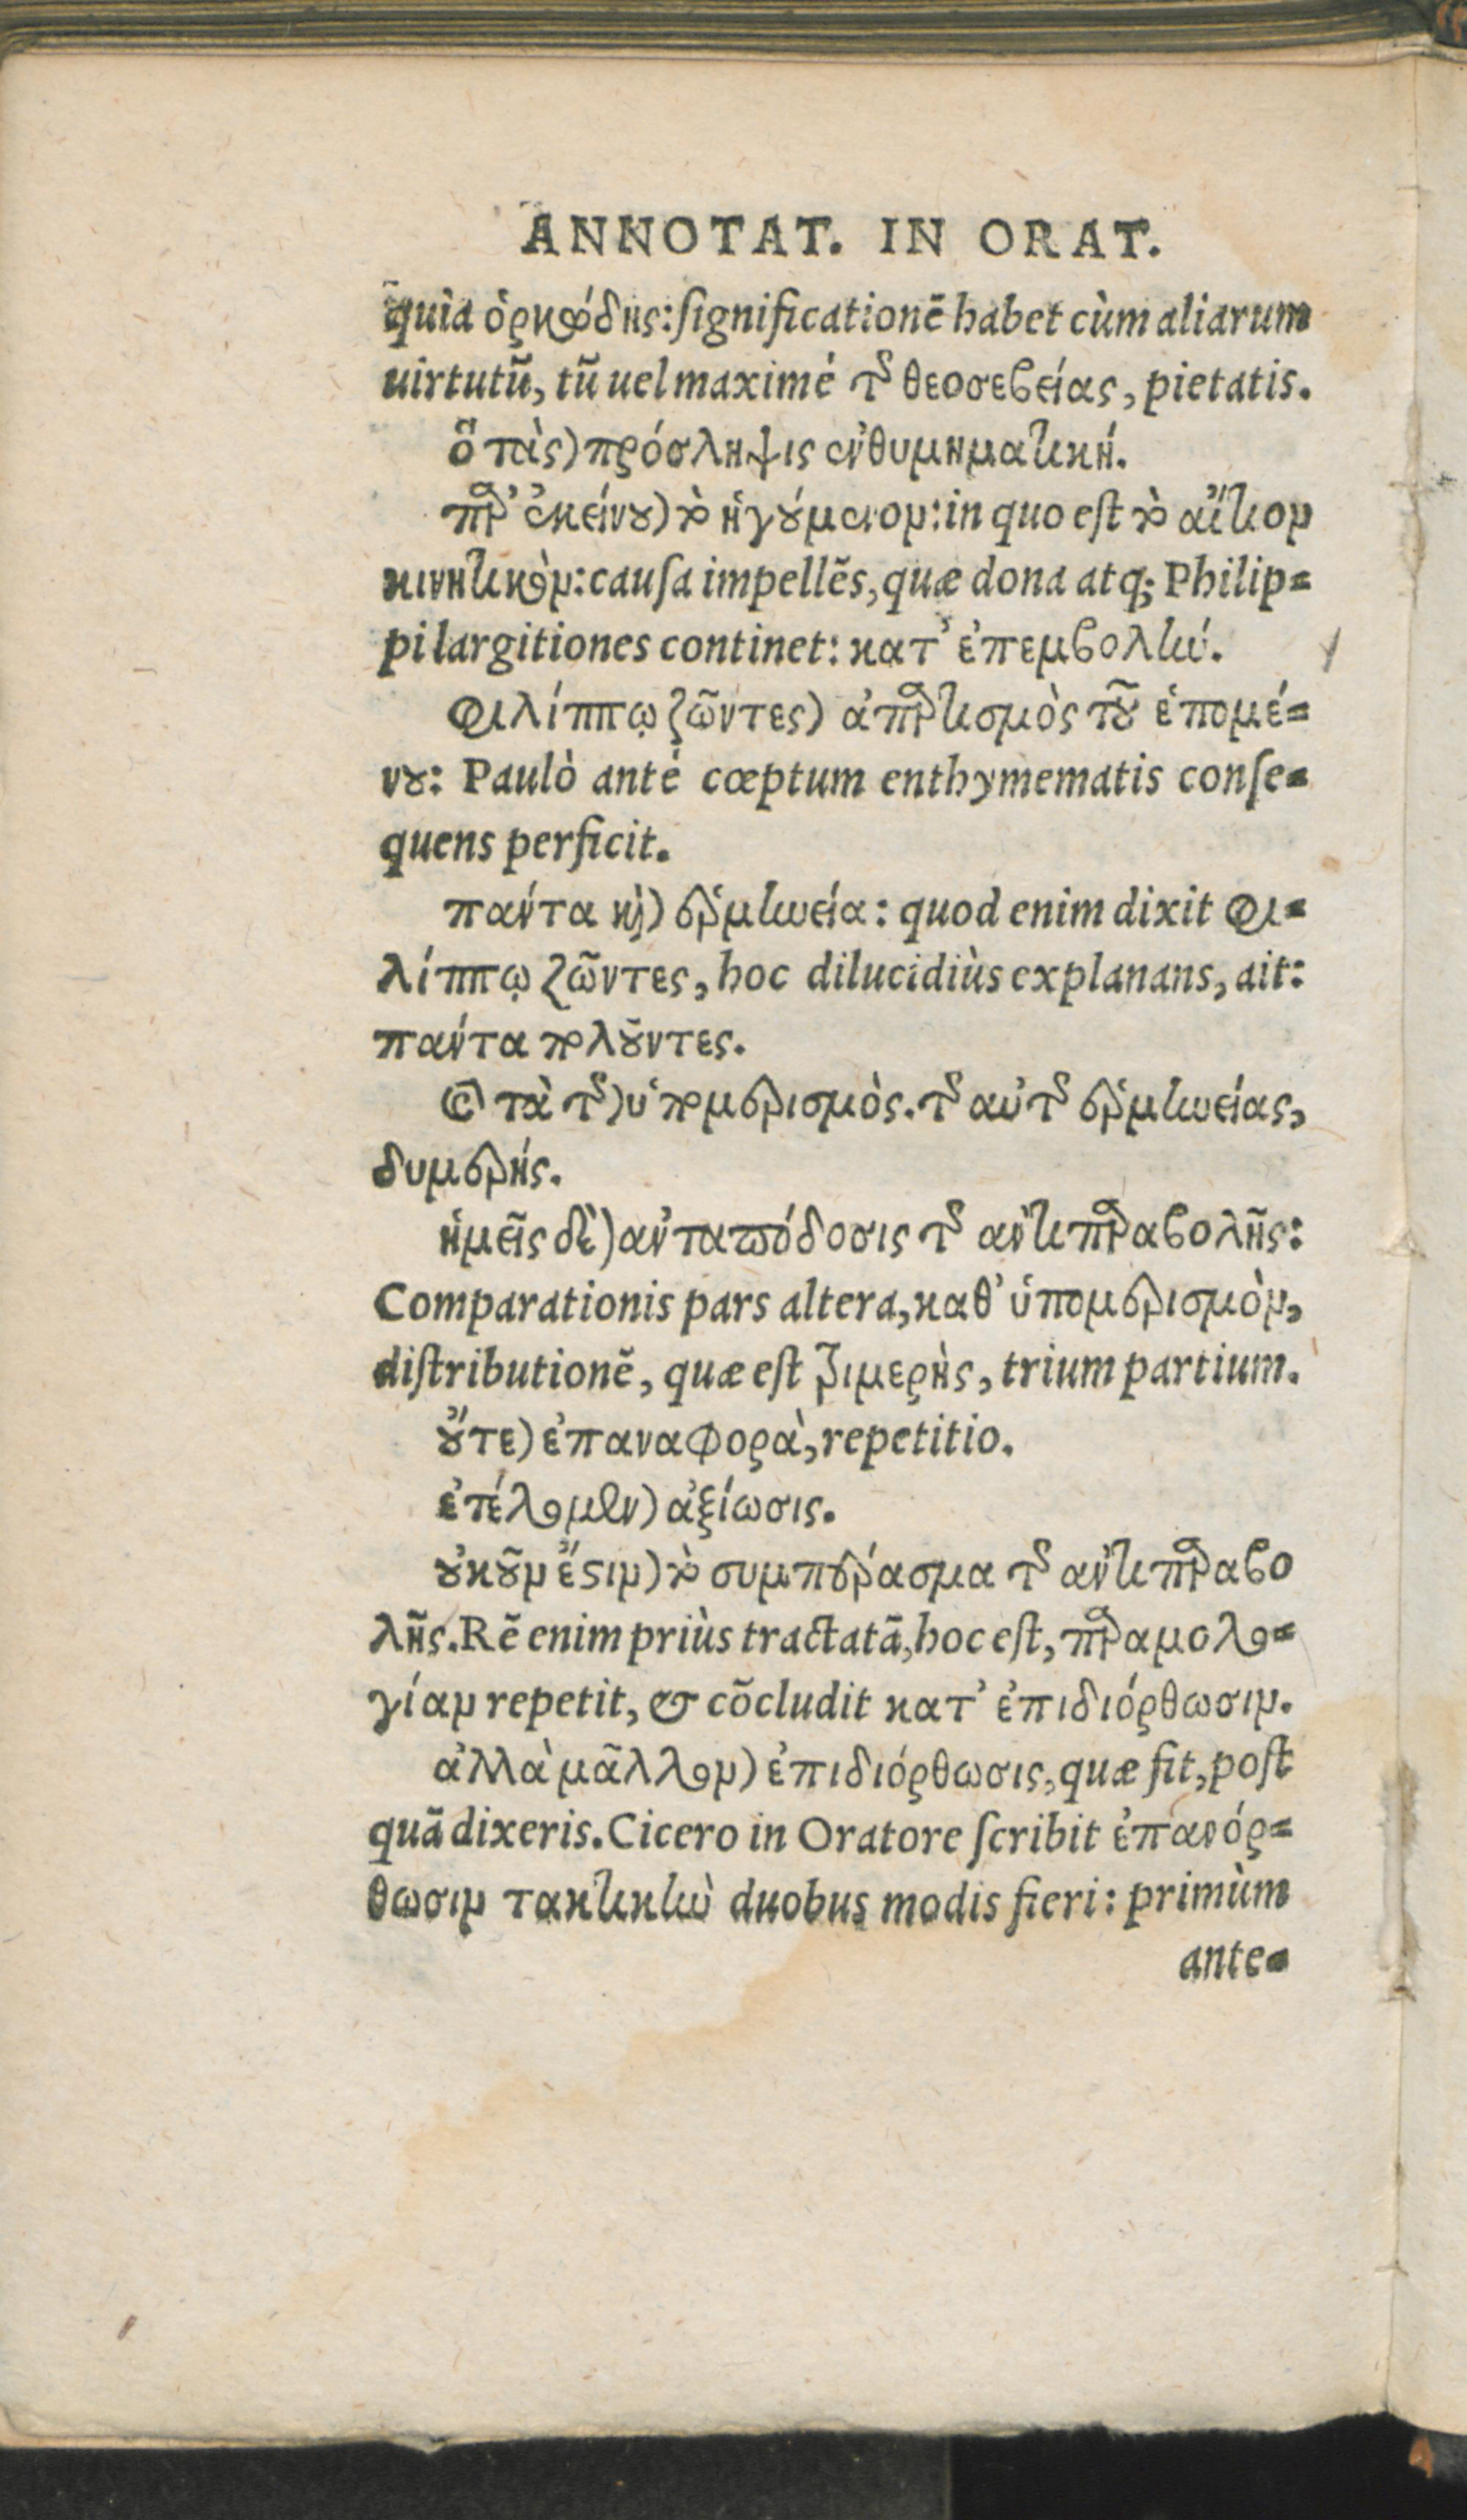 ANNOTAT. IN ORAT.
quia ὁρκώδης: significationē habet cùm aliarum
uirtutū, tū uel maximé τῆς θεοσεβείας, pietatis.
ὃ τὰς) πρόσληψις ἐνθυμηματική.
παρ' ἐκείνου) τὸ ἡγούμενον: in quo est τὸ αἴτιον
κινητικὸν: causa impellēs, quæ dona atq; Philip=
pi largitiones continet: κατ' ἐπεμβολήν.
Φιλίππῳ ζῶντες) ἀπαρτισμὸς τοῦ ἑπομέ=
νου: Paulò antè cœptum enthymematis conse=
quens perficit.
πάντα καὶ) ἑρμηνεία: quod enim dixit Φι=
λίππῳ ζῶντες, hoc dilucidiùs explanans, ait:
πάντα πωλοῦντες.
καὶ τὰ τῆς) ὑπομερισμὸς. τῆς αὐτῆς ἑρμηνείας,
διμερής.
ἡμεῖς δὲ) ἀνταπόδοσις τῆς ἀντιπαραβολῆς:
Comparationis pars altera, καθ' ὑπομερισμὸν,
distributionē, quæ est τριμερὴς, trium partium.
οὔτε) ἐπαναφορὰ, repetitio.
ἀξίωσις.
οὐκοῦν ἔστιν) τὸ συμπέρασμα τῆς ἀντιπαραβο
λῆς. Rē enim priùs tractatā, hoc est, παρομολο=
γίαν repetit, & cōcludit κατ' ἐπιδιόρθωσιν.
ἀλλὰ μᾶλλον) ἐπιδιόρθωσις, quæ fit, post
quā dixeris. Cicero in Oratore scribit ἐπανόρ=
θωσιν τακτικὴν duobus modis fieri: primùm
ante=